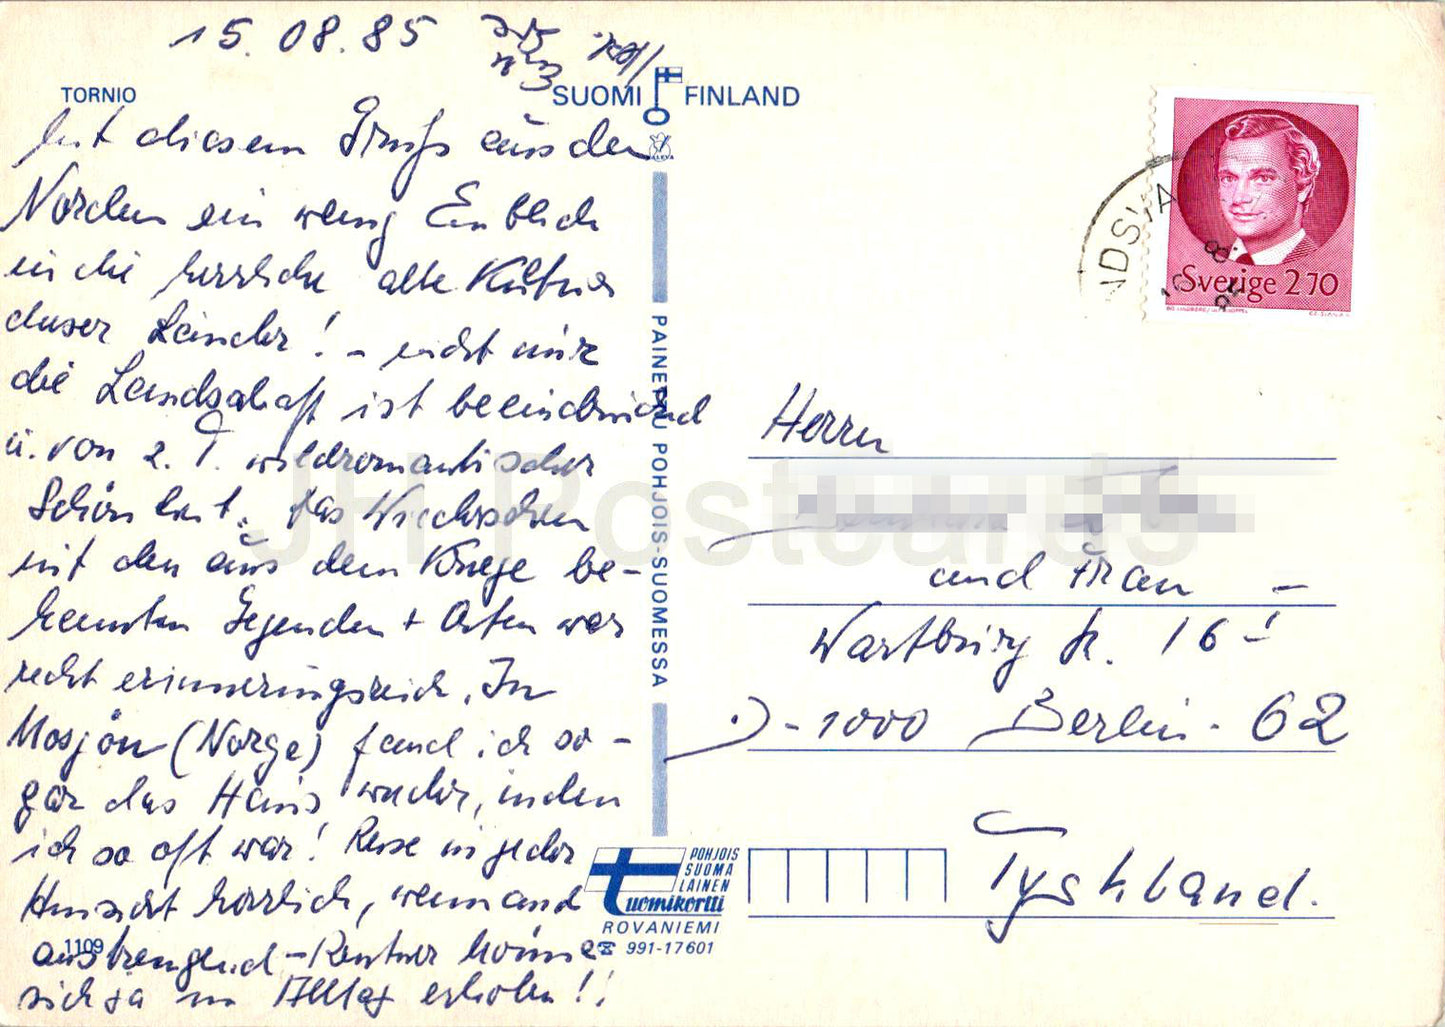 15.08.85
TORNIO
SUOMI FINLAND
Mit diesem Gruß aus dem
Norden ein wenig Einblick
in die herrliche alte Kultur
dieser Länder! – nicht nur
die Landschaft ist beeindruckend
u. von z. T. wildromantischer
Schönheit. Das Wiedersehen
mit den aus dem Kriege be-
kannten Gegenden + Orten war
recht erinnerungsreich. In
Mosjön (Norge) fand ich so-
gar das Haus wieder, in dem
ich so oft war! Reise in jeder
Hinsicht herrlich, wenn auch
anstrengend – Rentner können
sich ja im Alltag erholen!!
1109
PAINETTU POHJOIS-SUOMESSA
Sverige 270
Herrn
und Frau –
Wartburgstr. 16 I
D-1000 Berlin-62
Tyskland.
POHJOIS
SUOMA
LAINEN
tuomikortti
ROVANIEMI
☎ 991-17601
JH Postcards